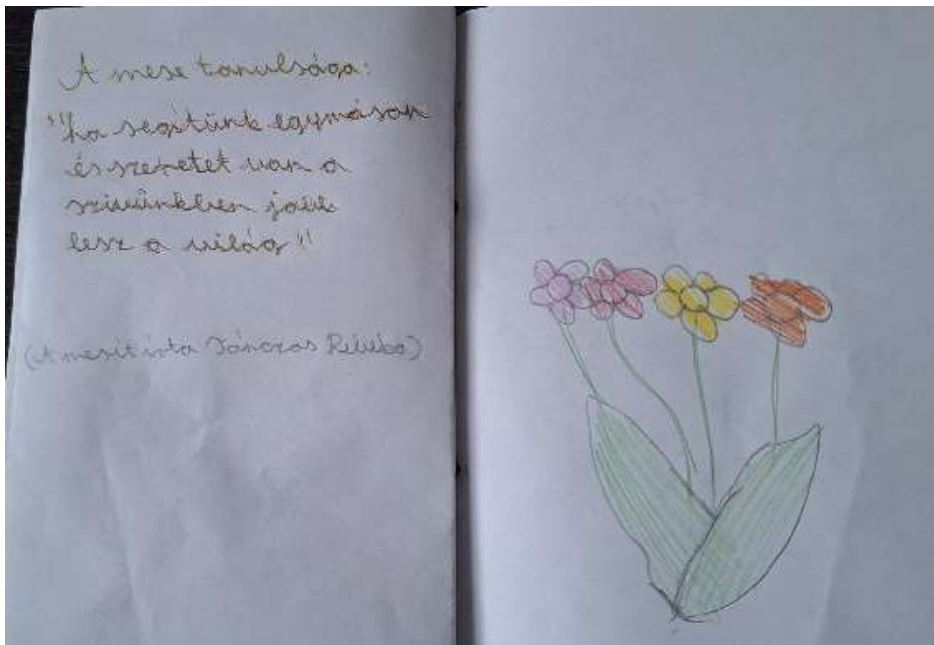 A mese tanulsága:
"ha segítünk egymáson
és szeretet van a
szivünkben jobb
lesz a világ"
(A mesét írta Jánczas Rebeka)